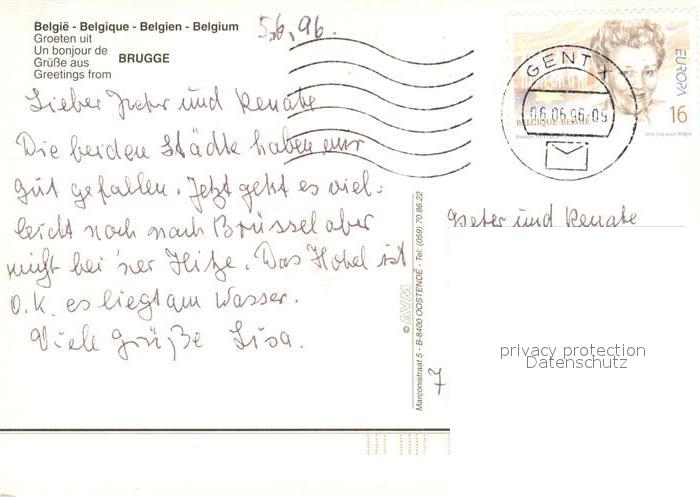 België - Belgique - Belgien - Belgium
Groeten uit
Un bonjour de
Grüße aus
Greetings from
BRUGGE
5.6.96.
Lieber Peter und Renate
Die beiden Städte haben mir
gut gefallen. Jetzt geht es viel=
leicht noch nach Brüssel aber
nicht bei 'ner Hitze. Das Hotel ist
O.K. es liegt am Wasser.
Viele Grüße Lisa.
GENT X
06.06.96-09
EUROPA
16
BELGIQUE-BELGIË
Peter und Renate
privacy protection
Datenschutz
Marconistraat 5 - B-8400 OOSTENDE - Tel: (059) 70.86.22
©
7